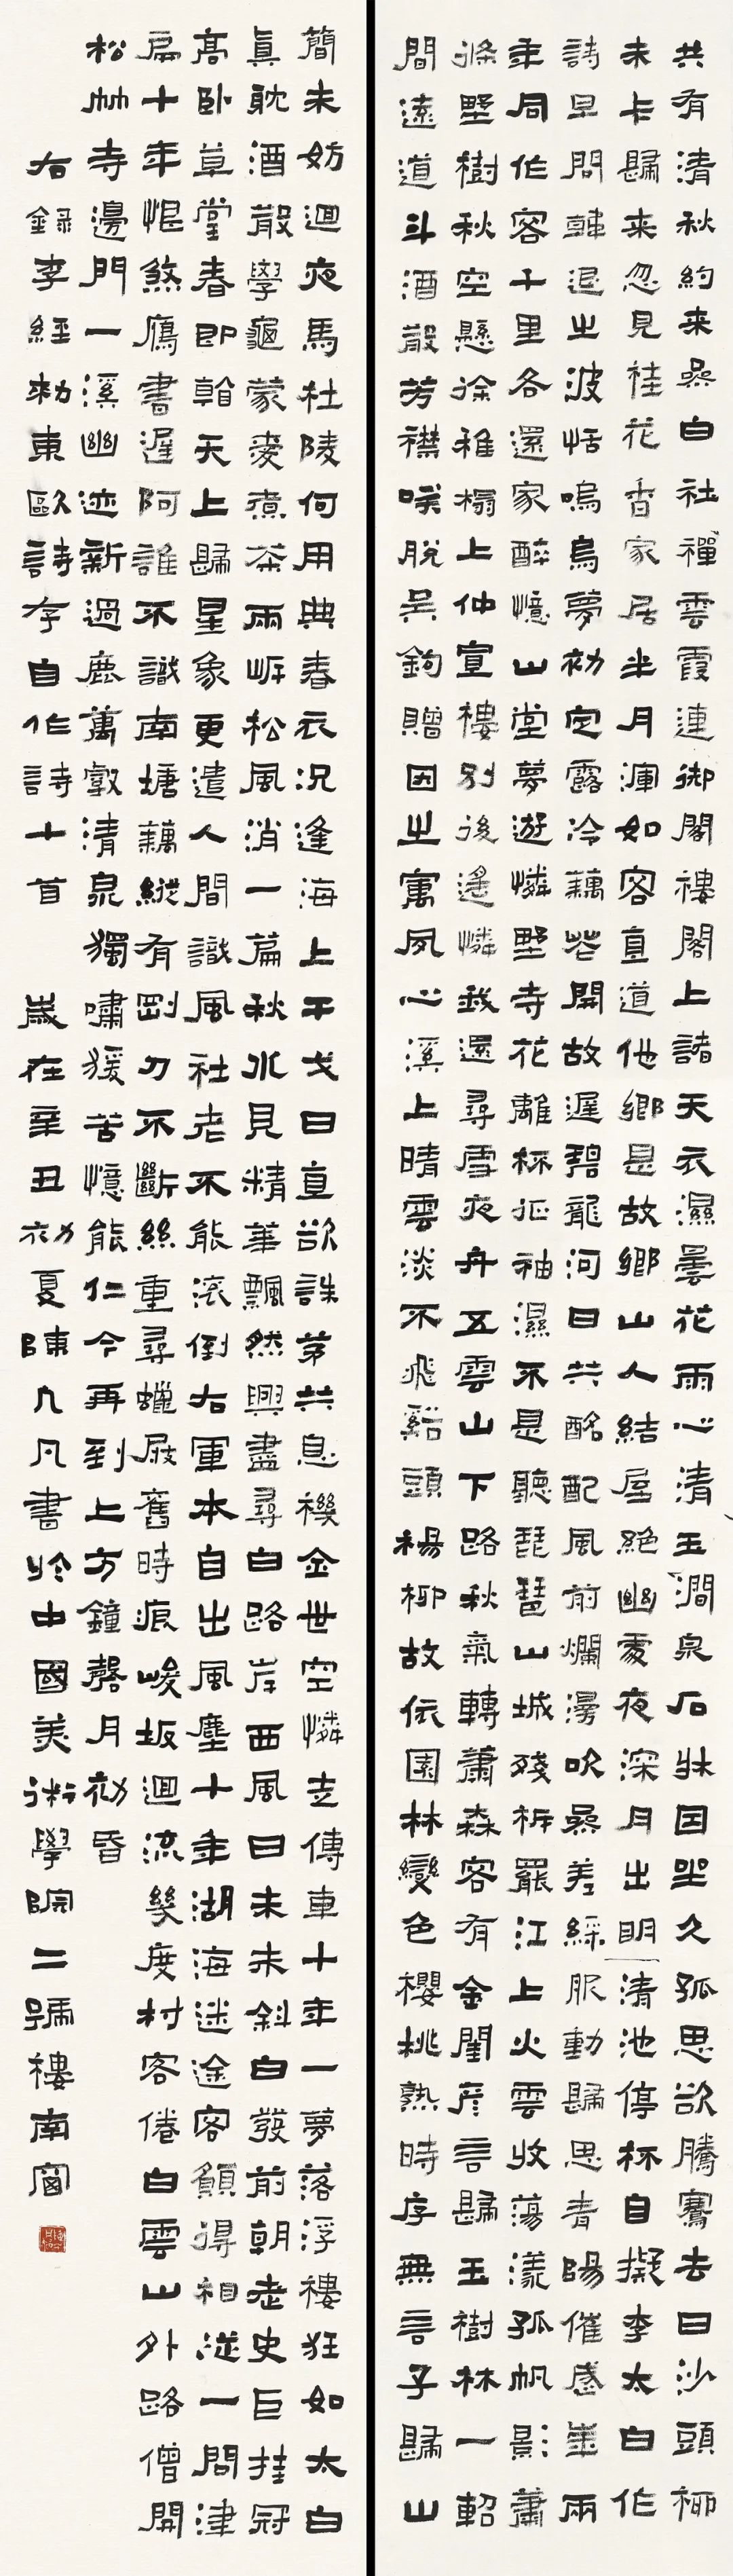 共有清秋約来尋白社禪雲霞連御閣樓閣上諸天衣濕曇花雨心清玉澗泉石牀因坐久孤思欲騰騫去日沙頭柳
未卡歸来忽見桂花香家居半月渾如客直道他鄉是故鄉山人結屋絕幽處夜深月出明清池停杯自擬李太白作
詩早問韓退之波恬鳴烏夢初定露冷藕花開故遲碧龍河日共酩配風前爛漫吹尋差綵服動歸思青陽催感崔兩
年同作客千里各還家醉憶山堂夢遊憐野寺花離杯征袖濕不是聽琵琶山城殘柝罷江上火雲收蕩漾孤帆影蕭
條野樹秋空懸徐稚榻上仲宣樓別後遙憐我還尋雪夜舟五雲山下路秋氣轉蕭森客有金閨彥言歸玉樹林一軺
間遠道斗酒散芳襟咲脫吳鉤贈因之寓夙心溪上晴雲淡不飛谿頭楊柳故依園林變色櫻桃熟時序無言子歸山
簡未妨迴夜馬杜陵何用典春衣況逢海上干戈日直欲誅茅共息機金世空憐走傳車十年一夢落浮樓狂如太白
真耽酒散學龜蒙愛煮茶兩岍松風消一篇秋水見精華飄然興盡尋白路岸西風日未未斜白發前朝老史巨挂冠
高臥草堂春即翰天上歸星象更遣人間識風社老不能滾倒右軍本自出風塵十年湖海迷途客願得相從一問津
扁十年恨煞鴈書遲阿誰不識南塘藕縱有剛刀不斷絲重尋蠟屐舊時痕峻坂迴流幾度村客倦白雲山外路僧開
松竹寺邊門一溪幽迹新過鹿萬壑清泉獨嘯猨苦憶能仁今再到上方鐘磬月初昏
右錄李經勑東歐詩存自作詩十首 歲在辛丑初夏陳九凡書於中國美術學院二號樓南窗